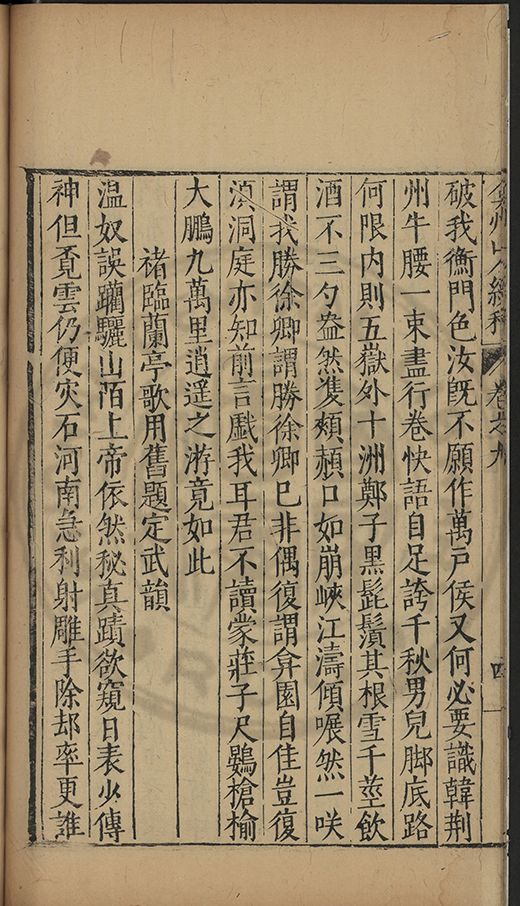 弇州山人續稿 卷之九 四
破我衡門色汝既不願作萬戶侯又何必要識韓荆
州牛腰一束盡行卷快語自足誇千秋男兒脚底路
何限內則五嶽外十洲鄭子黑髭鬚其根雪千莖飲
酒不三勺盎然雙頰頳口如崩峽江濤傾囅然一咲
謂我勝徐卿謂勝徐卿已非偶復謂弇園自佳豈復
滇洞庭亦知前言戲我耳君不讀蒙莊子尺鷃槍榆
大鵬九萬里逍遥之游竟如此
褚臨蘭亭歌用舊題定武韻
温奴誤躪驪山陌上帝依然秘真蹟欲窺日表少傳
神但覔雲仍便灾石河南急利射雕手除却率更誰